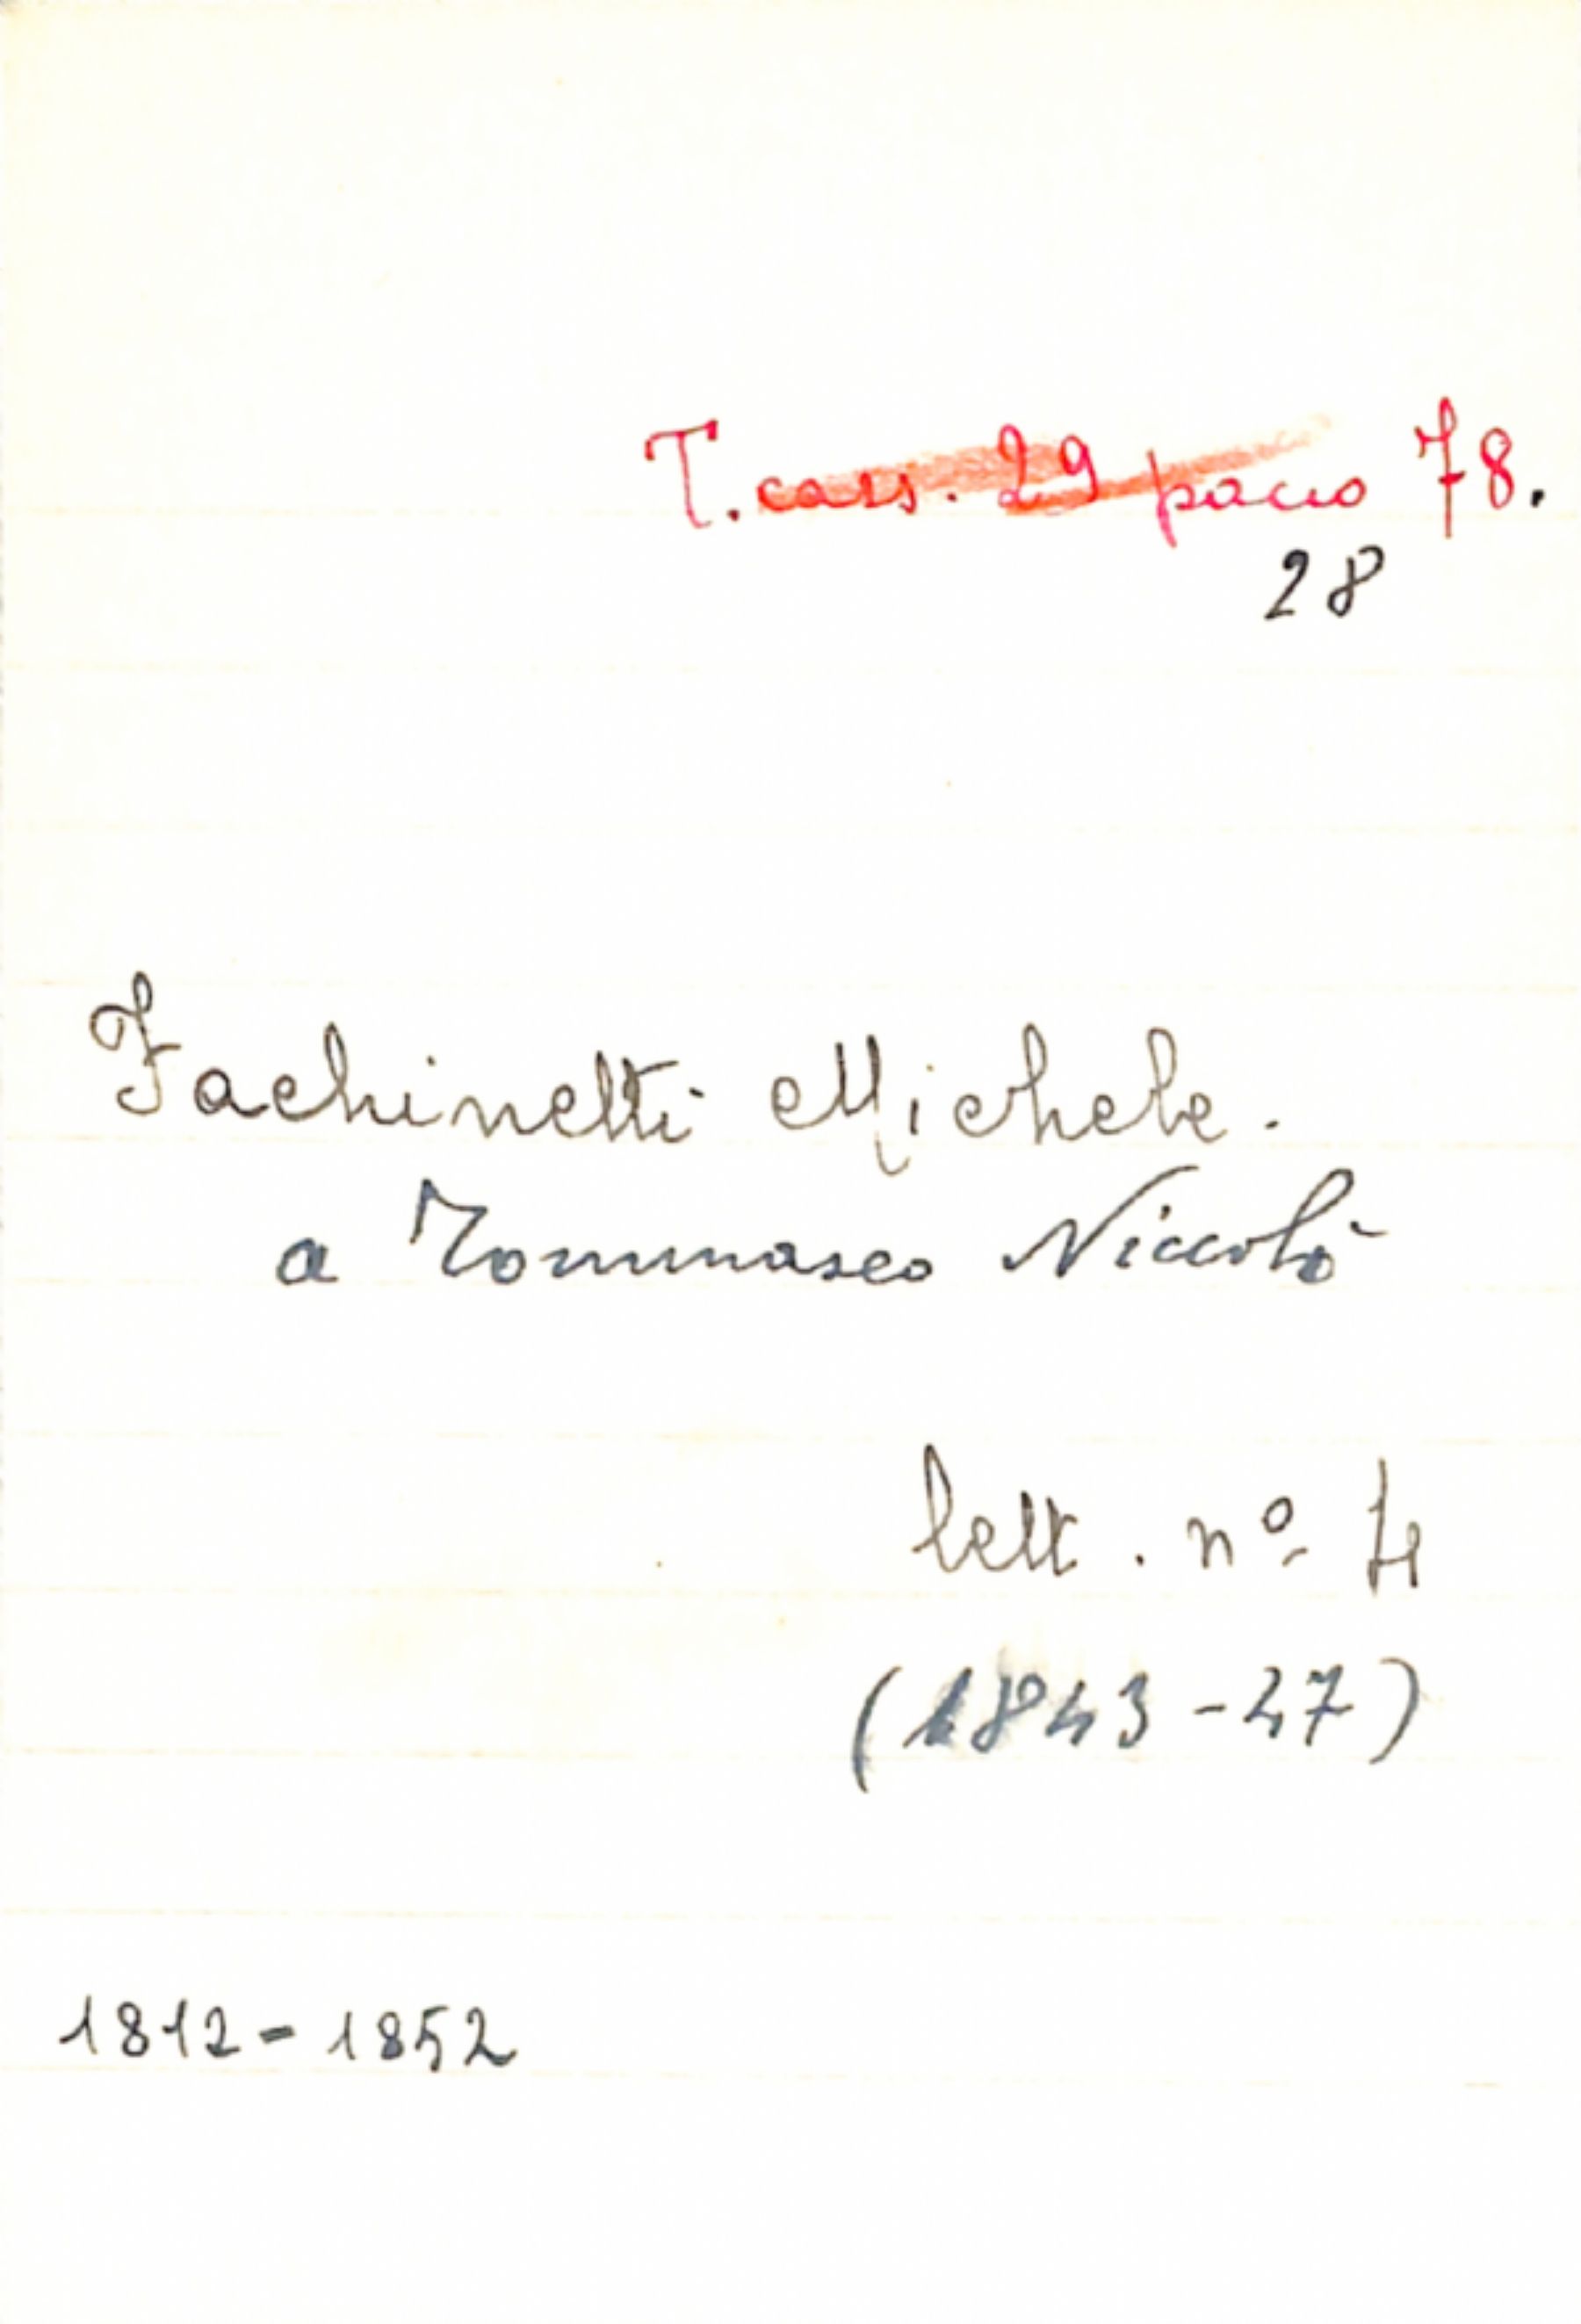 T. cass. 29 pacco 78.
28
Fachinetti Michele.
a Tommaseo Niccolò
lett. nº 4
(1843-47)
1812-1852